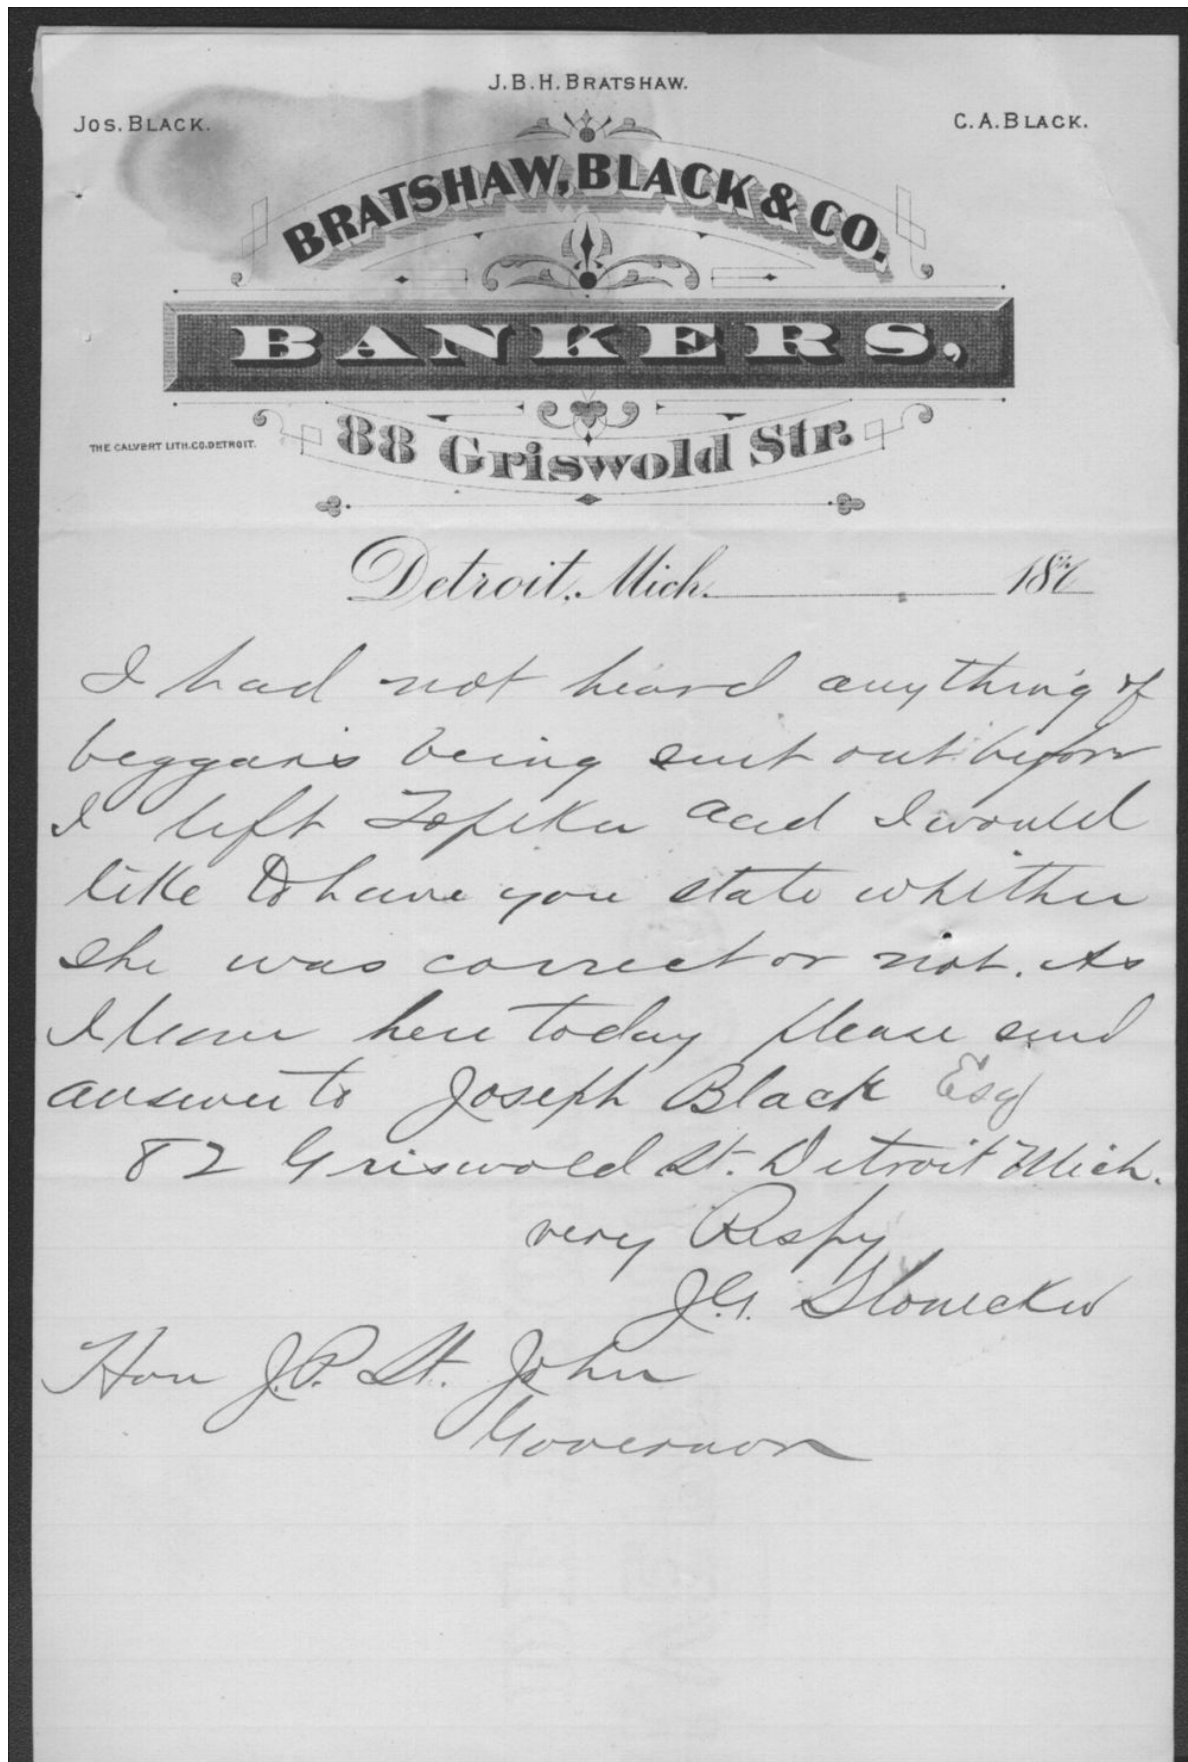 J.B.H. BRATSHAW.
JOS. BLACK.
C.A. BLACK.
BRATSHAW, BLACK & CO.
BANKERS,
THE CALVERT LITH.CO.DETROIT.
88 Griswold Str.
Detroit, Mich. 18
I had not heard anything of
beggars being sent out before
I left Topeka and I would
like to have you state whether
she was correct or not. As
I leave here today please send
answer to Joseph Black Esq
82 Griswold St. Detroit Mich.
very Respy
J.G. Slonecker
Hon J.P. St. John
Governor